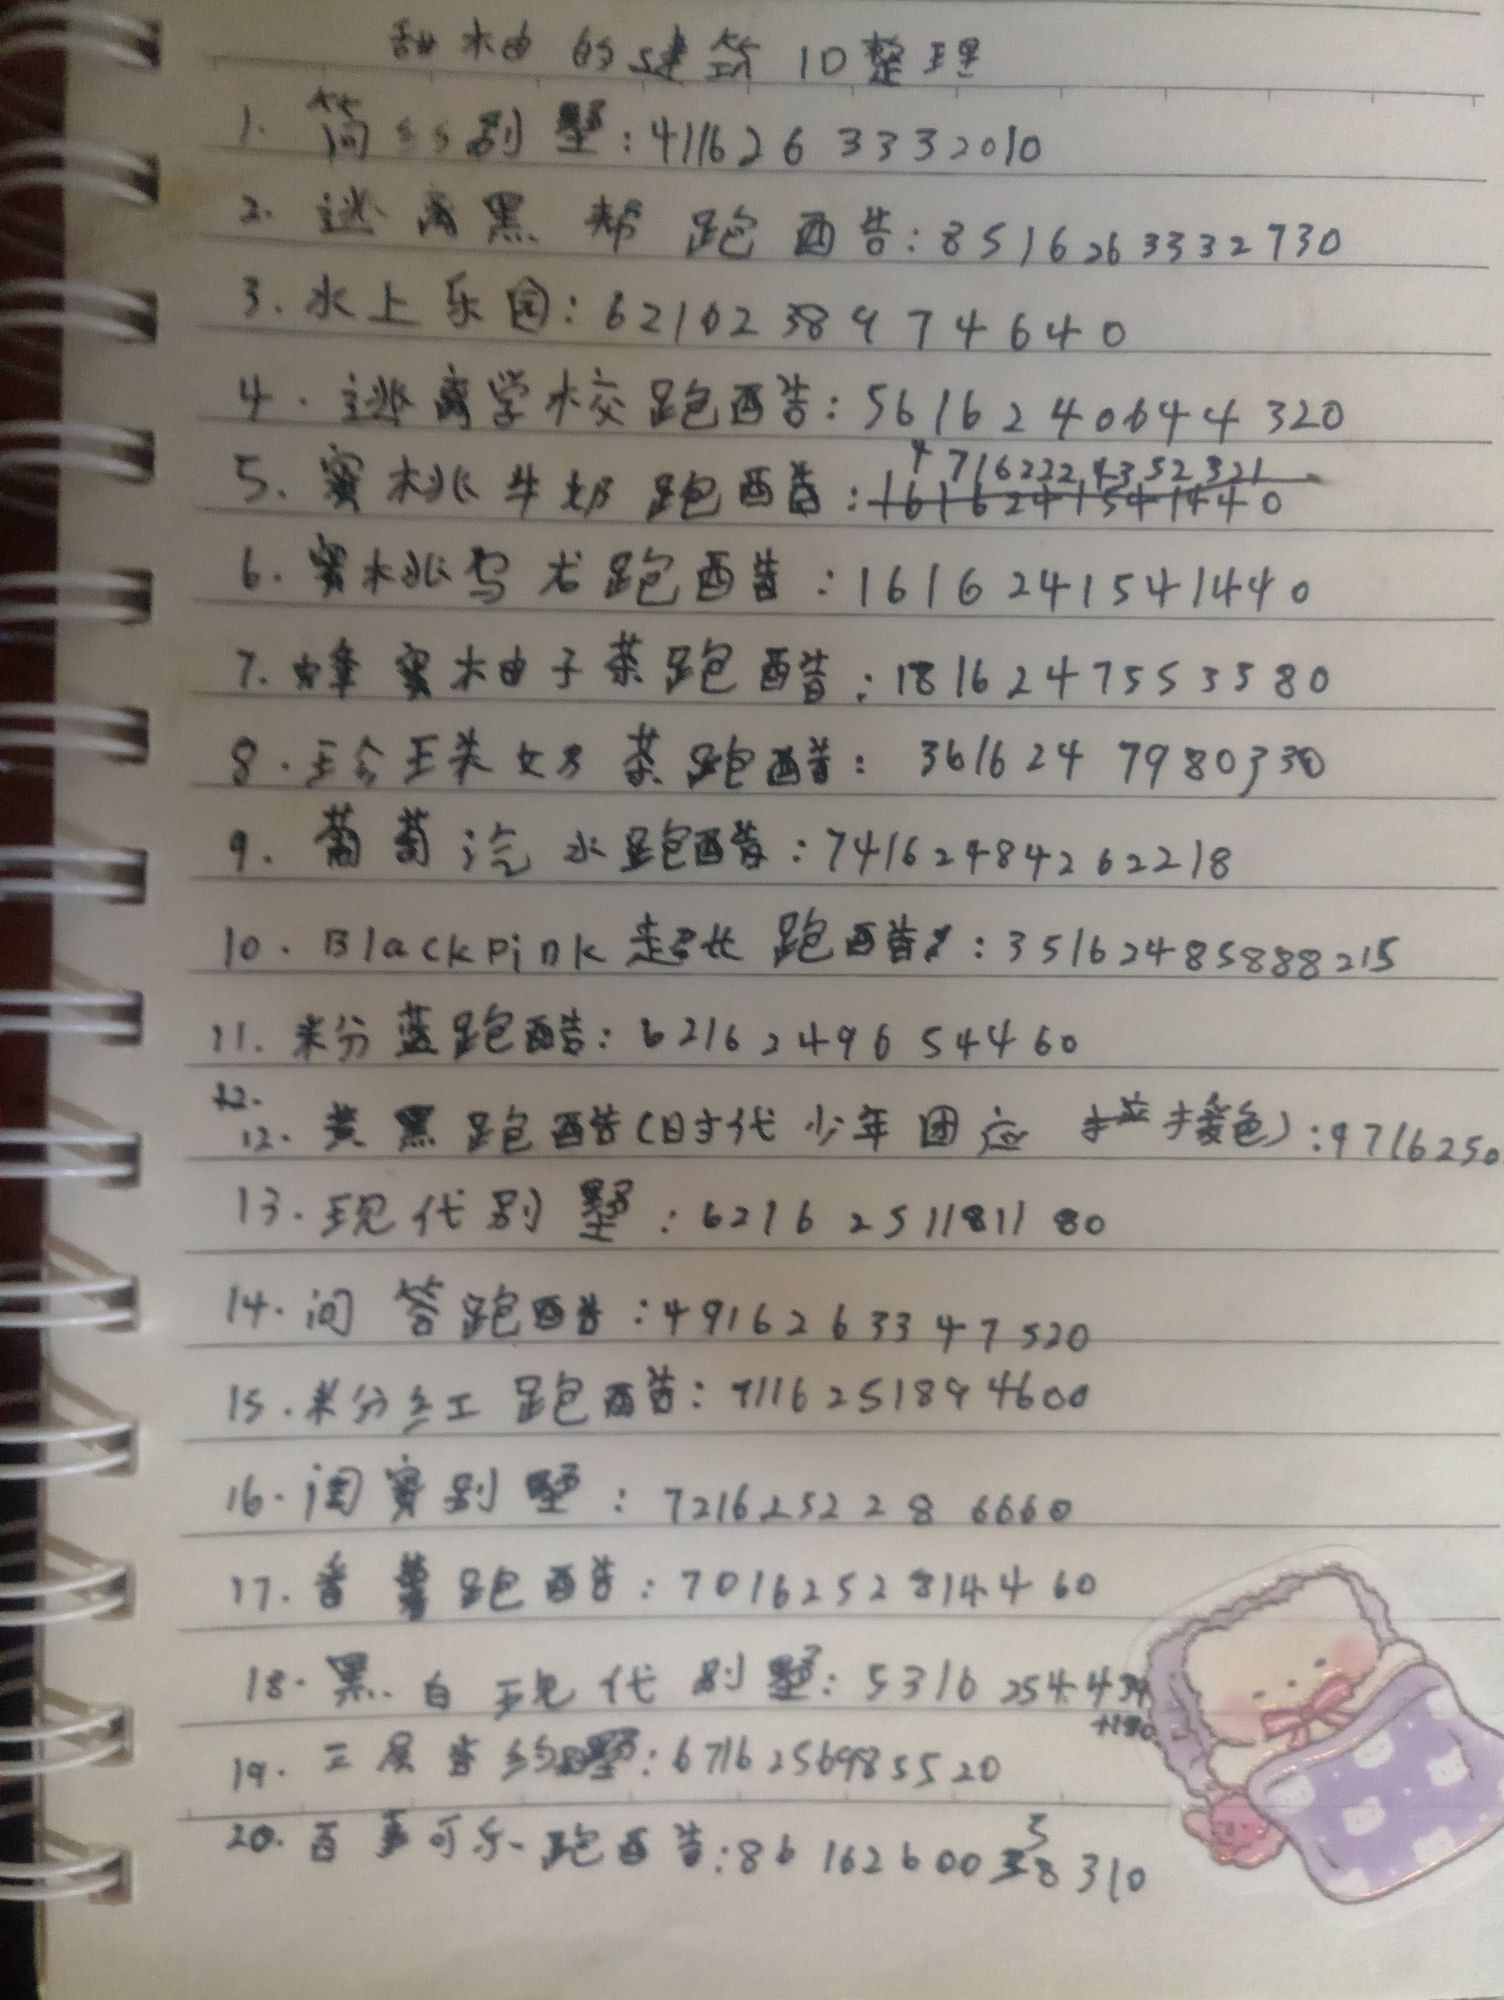 甜柚的建筑ID整理
1. 简约别墅:411626 3332010
2. 逃离黑帮跑酷:851626 3332730
3. 水上乐园:62162 38974640
4. 逃离学校跑酷:561624 0644320
5. 蜜桃牛奶跑酷:4716222 4352321
1616241541440
6. 蜜桃乌龙跑酷:1616241541440
7. 蜂蜜柚子茶跑酷:1816247553580
8. 珍珠奶茶跑酷:361624 7980330
9. 葡萄汽水跑酷:7416248426 2218
10. Blackpink超长跑酷:3516248588 8215
11. 粉蓝跑酷:621624965 4460
12.
12. 黄黑跑酷(时代少年团应援色):9716250
13. 现代别墅:62162 51181180
14. 问答跑酷:4916263347520
15. 粉红跑酷:7116251894600
16. 淘宝别墅:7216252286660
17. 香薯跑酷:7016252814460
18. 黑白现代别墅:5316254434
19. 三层别墅:6716256985520
20. 百事可乐跑酷:86162600 58310